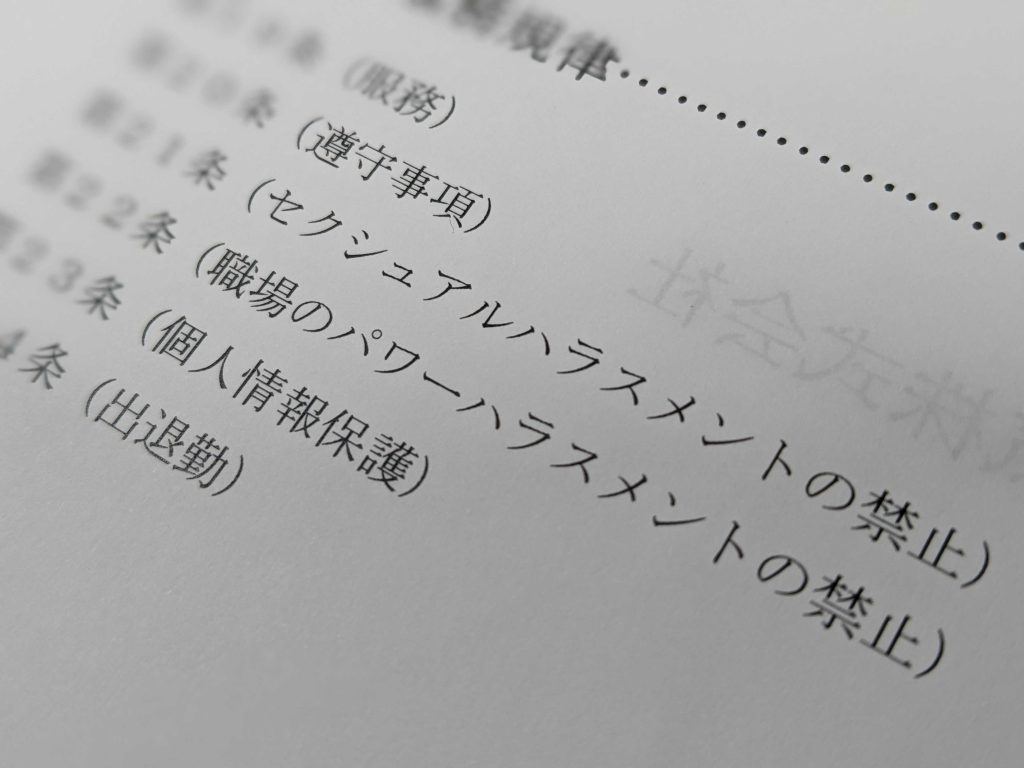 規律
条 (服務)
第20条 (遵守事項)
第21条 (セクシュアルハラスメントの禁止)
第22条 (職場のパワーハラスメントの禁止)
第23条 (個人情報保護)
4条 (出退勤)
株式会社